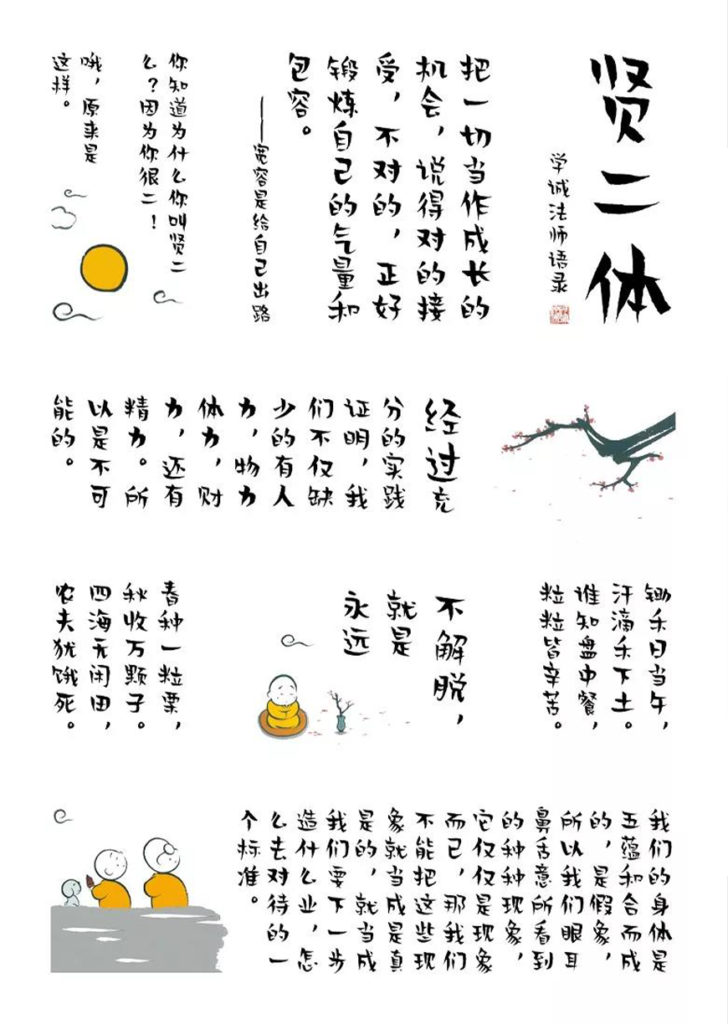 贤二体
学诚法师语录
把一切当作成长的
机会，说得对的接
受，不对的，正好
锻炼自己的气量和
包容。
——宽容是给自己出路
你知道为什么你叫贤二
么？因为你很二！
哦，原来是
这样。
经过充
分的实践
证明，我
们不仅缺
少的有人
力，物力
体力，财
力，还有
精力。所
以是不可
能的。
锄禾日当午，
汗滴禾下土。
谁知盘中餐，
粒粒皆辛苦。
不解脱，
就是
永远
春种一粒粟，
秋收万颗子。
四海无闲田，
农夫犹饿死。
我们的身体是
五蕴和合而成
的，是假象，
所以我们眼耳
鼻舌意所看到
的种种现象，
它仅仅是现象
而已，那我们
不能把这些现
象就当成是真
是的，就当成
我们要下一步
造什么业，怎
么去对待的一
个标准。